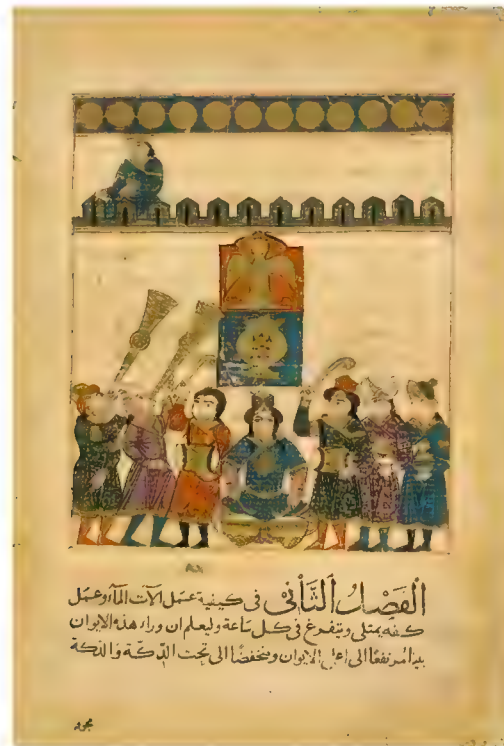 الفصل الثاني في كيفية عمل الآت الماء وعمل
كفه يمتلى ويتفرغ في كل ساعة وليعلم ان وراء هذه الايوان
مرتفعًا الى اعلى الايوان ومنخفضًا الى تحت الدكة والدكة